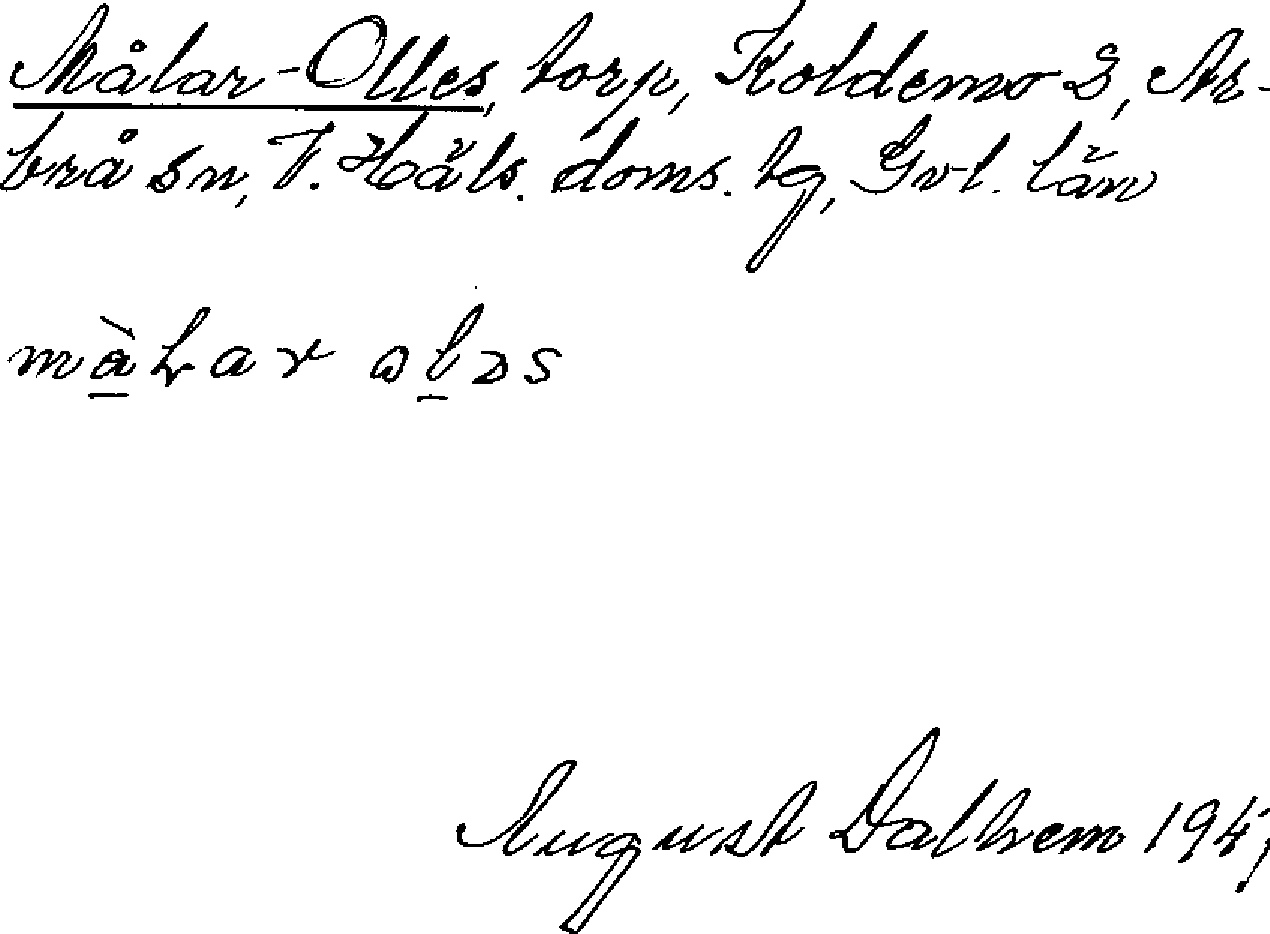 Målar-Olles, torp, Koldemo 2, Ar-
brå sn, V. Häls. doms. tg, Gvl. län
August Dalhem